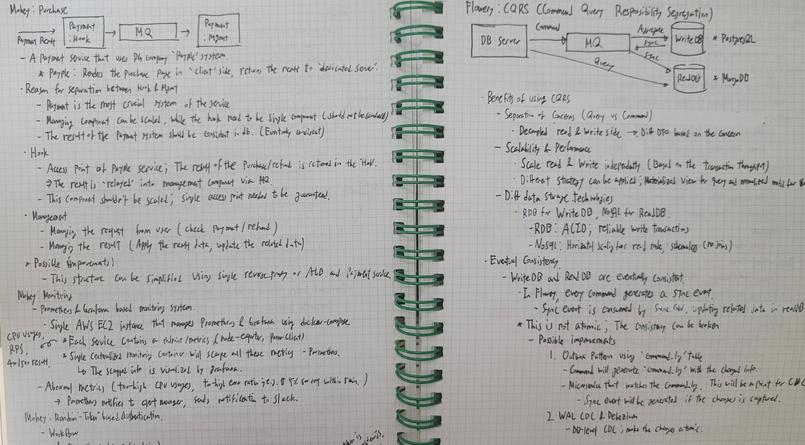 Mokey: Purchase
Payment Result
Payment: Hook
MQ
Payment: Mgmt
- A Payment service that uses PG company "Payple" system.
* Payple: Renders the Purchase Page in 'client' side, returns the result to 'dedicated server'.
· Reason for separation between Hook & Mgmt
- Payment is the most crucial system of the service
- Managing component can be scaled, while the hook need to be single component (should not be scaled)
- The result of the Payment system should be consistent in db. (Eventually consistent)
· Hook
- Access point of Payple service; The result of the Purchase/refund is returned in the Hook.
→ The result is 'relayed' into management component via MQ.
- This component shouldn't be scaled; single access point needed to be guaranteed.
· Management
- Managing the request from user (check payment/refund)
- Managing the result (Apply the result data, update the related data)
* Possible Improvements!
- This structure can be simplified using single reverse proxy or ALB and Payment service.
Mokey: Monitoring
- Prometheus & Grafana based monitoring system.
- Single AWS EC2 instance that manages Prometheus & Grafana using docker-compose.
CPU usages,
RPS,
* Each service contains metrics (node-exporter, prom-client)
* Single Centralized monitoring Container will scrape all these metrics - Prometheus.
↳ The scraped info is visualized by grafana.
- Abnormal metrics (too high CPU usages, too high error ratio
→ Prometheus notifies to alert manager, sends notification to slack.
Mokey: Random-Token based authentication.
- Workflow
Flowery: CQRS (Command Query Responsibility Segregation)
DB Server
Command
MQ
Aggregate
Sync
Write DB
* PostgreSQL
Query
Sync
Read DB
* MongoDB
· Benefits of using CQRS
- Separation of Concerns (Query vs Command)
- Decoupled read & write side → Diff DTO based on the concern
- Scalability & Performance
- Scale read & write independently (Based on the transaction throughput)
- Different strategy can be applied; Materialized view for query and normalized model for
- Diff data storage technologies
- RDB for WriteDB, NoSQL for ReadDB.
- RDB: ACID; reliable write transactions
- NoSQL: Horizontal scaling for read node, schemaless (no joins)
· Eventual Consistency
- WriteDB and ReadDB are eventually consistent.
· In Flowery, every Command generates a sync event.
- Sync event is consumed by updating related data in readDB
* This is not atomic; The consistency can be broken
- Possible improvements
1. Outbox Pattern using 'commandby' table
- Command will generate 'commandby' with the changed info.
- Microservice that watches the commandby. This will be a
- Sync event will be generated if the changes is captured.
2. WAL CDC & Debezium
- DB-level CDC; make the changes atomic.